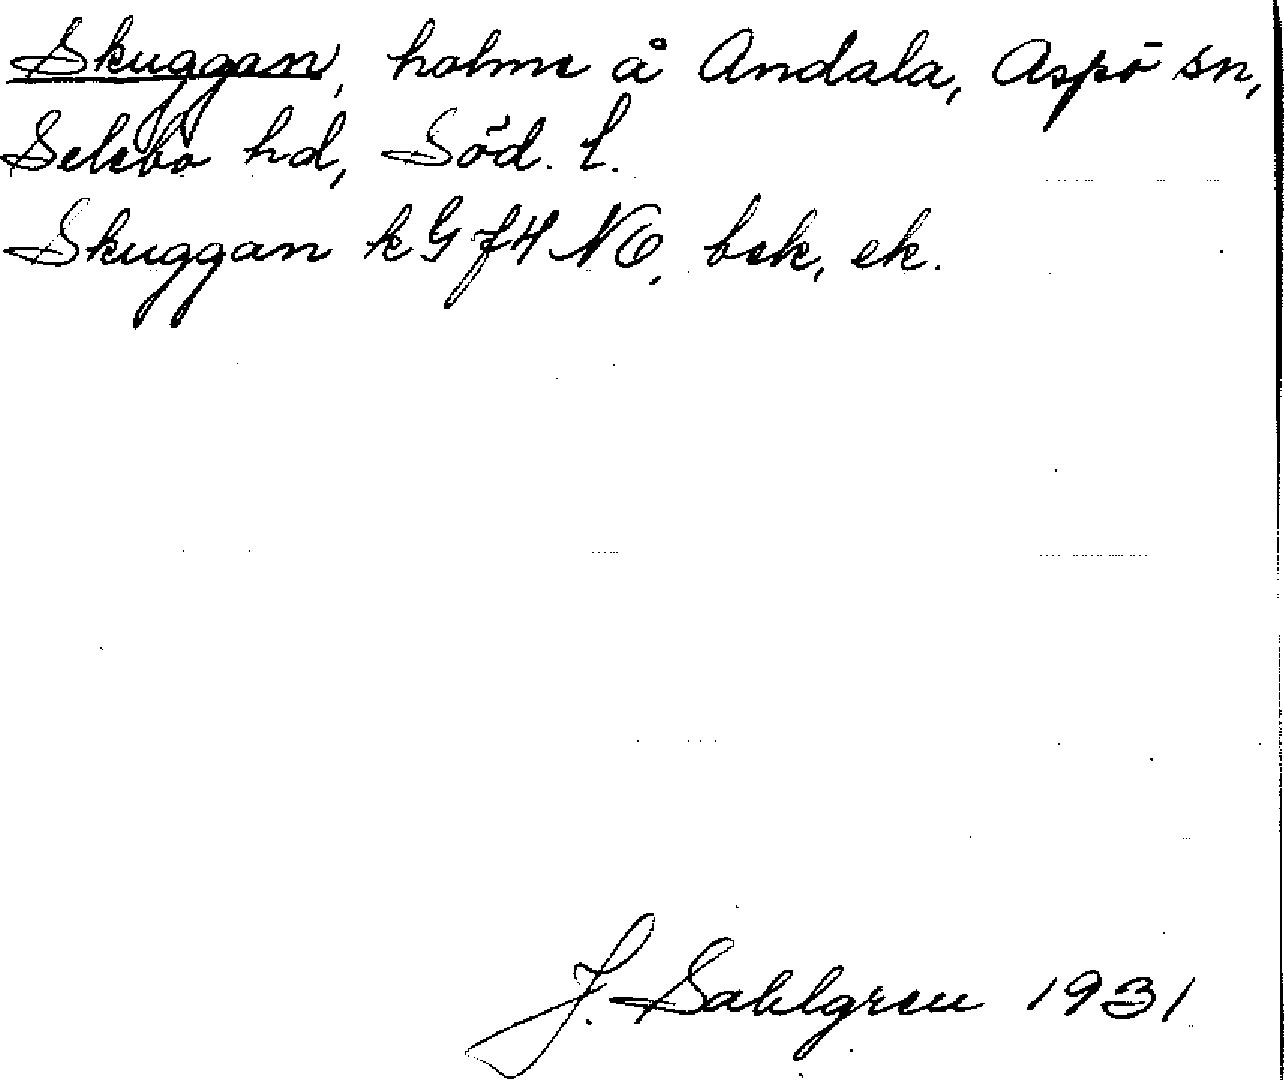 Skuggan, holme å Andala, Aspö sn,
Selebo hd, Söd. l.
Skuggan kG f4 NO, bek, ek.
J. Sahlgren 1931